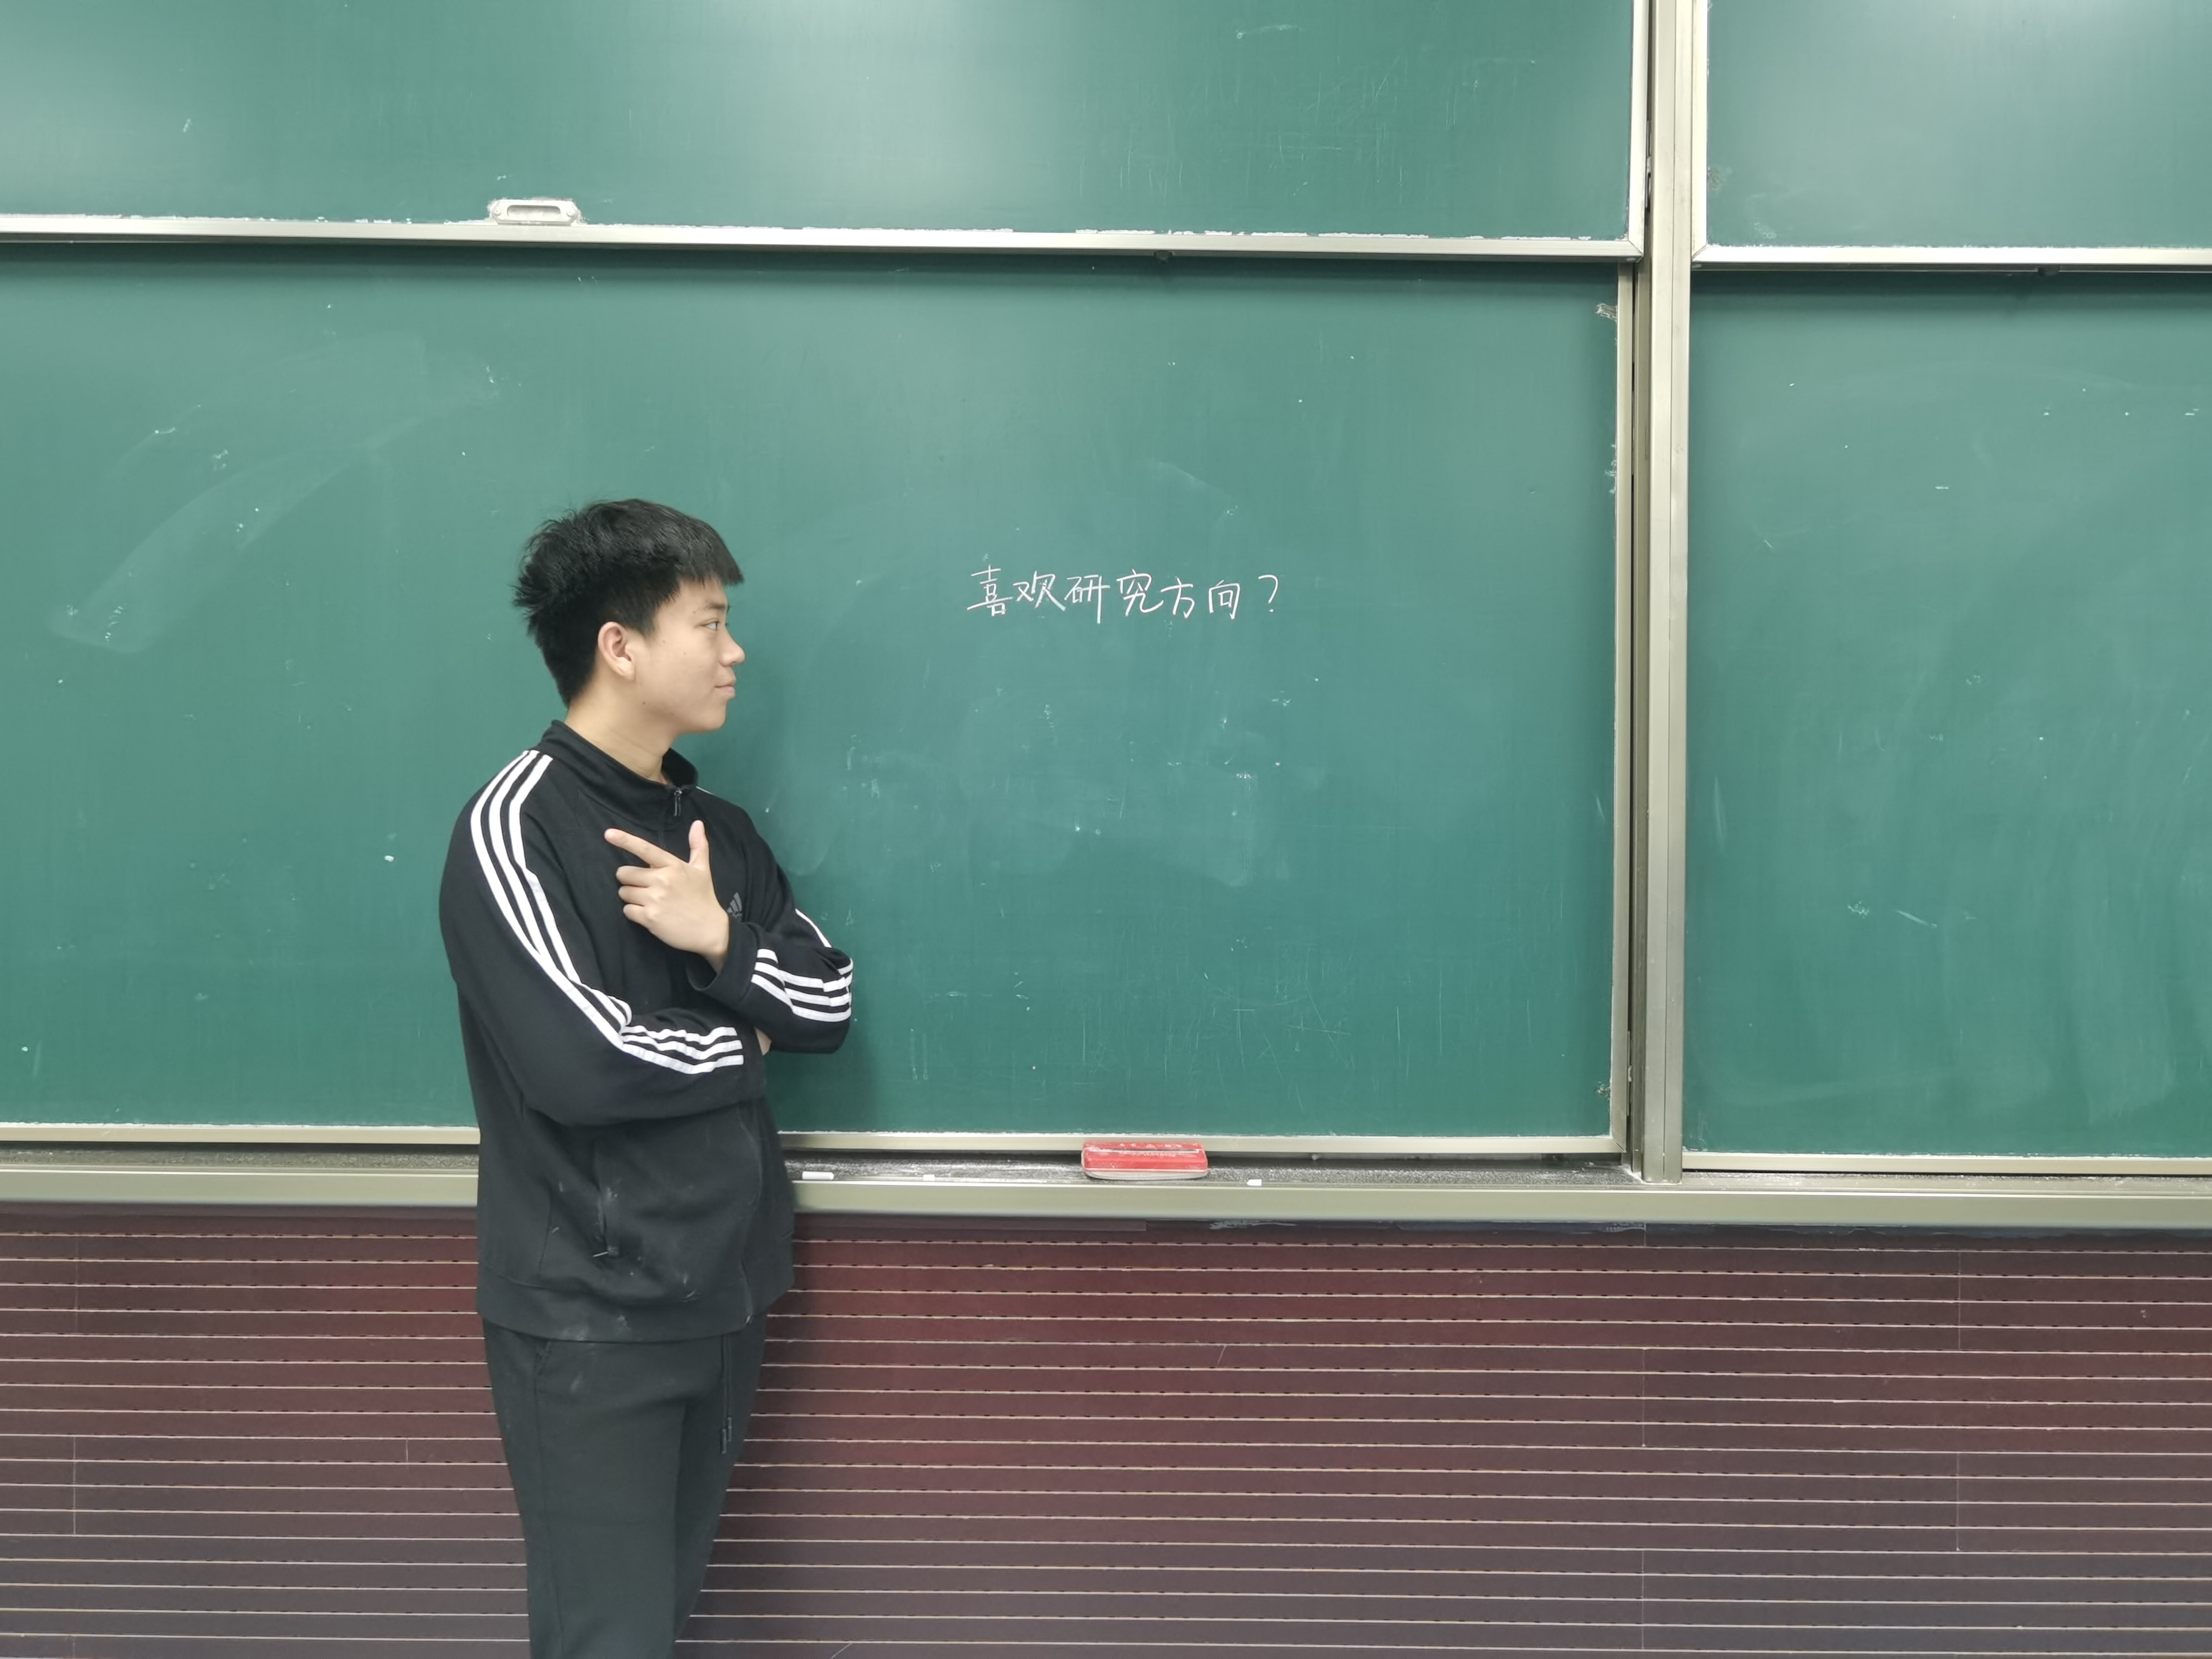 喜欢研究方向？